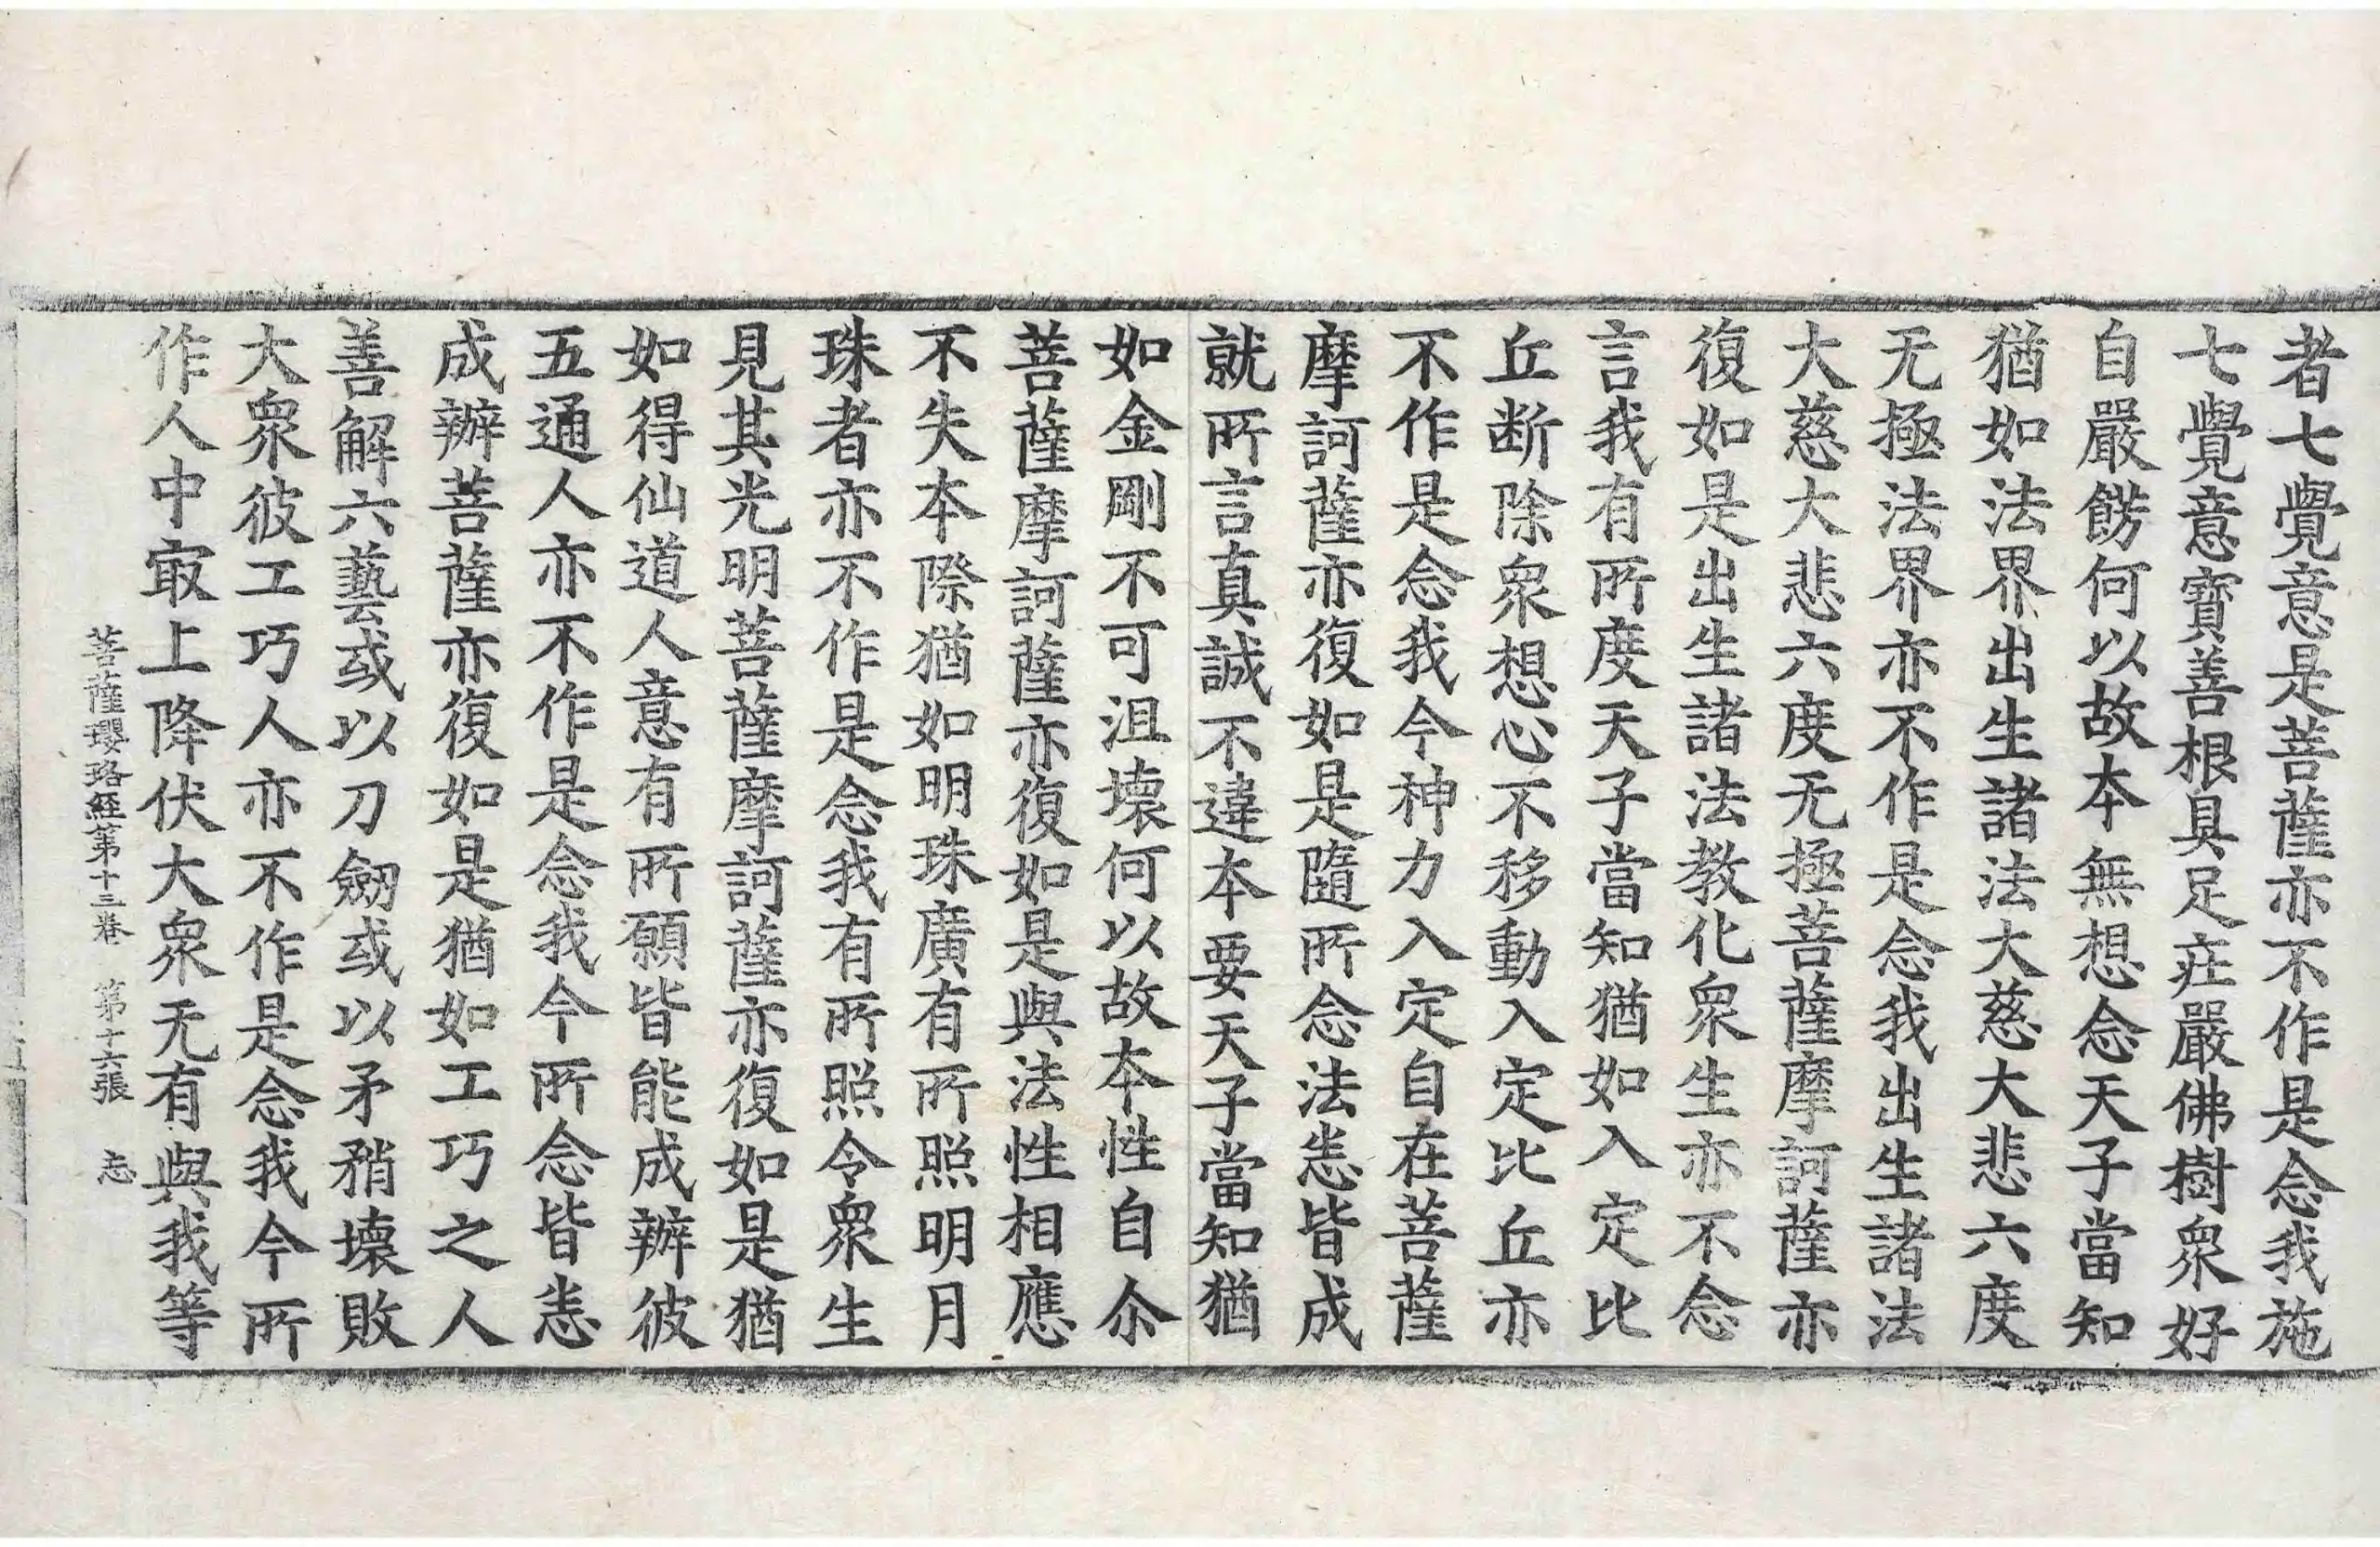 者七覺意是菩薩亦不作是念我施
七覺意寶善根具足庄嚴佛樹衆好
自嚴餝何以故本無想念天子當知
猶如法界出生諸法大慈大悲六度
无極法界亦不作是念我出生諸法
大慈大悲六度无極菩薩摩訶薩亦
復如是出生諸法教化衆生亦不念
言我有所度天子當知猶如入定比
丘断除衆想心不移動入定比丘亦
不作是念我今神力入定自在菩薩
摩訶薩亦復如是隨所念法恙皆成
就所言真誠不違本要天子當知猶
如金剛不可沮壞何以故本性自尒
菩薩摩訶薩亦復如是與法性相應
不失本際猶如明珠廣有所照明月
珠者亦不作是念我有所照令衆生
見其光明菩薩摩訶薩亦復如是猶
如得仙道人意有所願皆能成辦彼
五通人亦不作是念我今所念皆恙
成辦菩薩亦復如是猶如工巧之人
善解六藝或以刀劒或以矛矟壞敗
大衆彼工巧人亦不作是念我今所
作人中㝡上降伏大衆无有與我等
菩薩瓔珞經第十三卷　第十六張　志